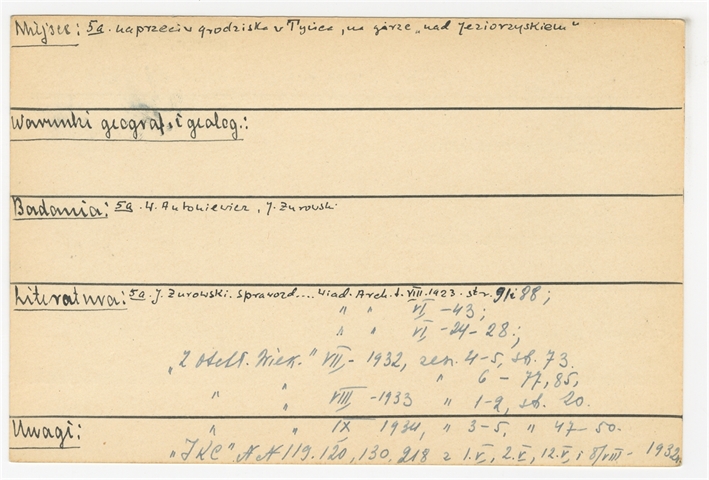 Miejsce: 5a. naprzeciw grodziska w Tyńcu, na górze „nad Jeziorzyskiem"
Warunki geograf. i geolog.:
Badania: 5a. W. Antoniewicz, J. Żurowski.
Literatura: 5a. J. Żurowski. Sprawozd.... Wiad. Arch. t. VIII. 1923. str. 91 i 88;
" " VI - 43;
" " VI - 24-28;
„Z otchł. Wiek." VII, - 1932, zesz. 4-5, st. 73.
" " 6 - 77, 85,
" " VIII, - 1933 " 1-2, st. 20.
Uwagi: " " IX 1934, " 3-5, " 47-50.
„IKC" NN 119. 120, 130, 218 z 1.V, 2.V, 12.V, i 8/VIII - 1932